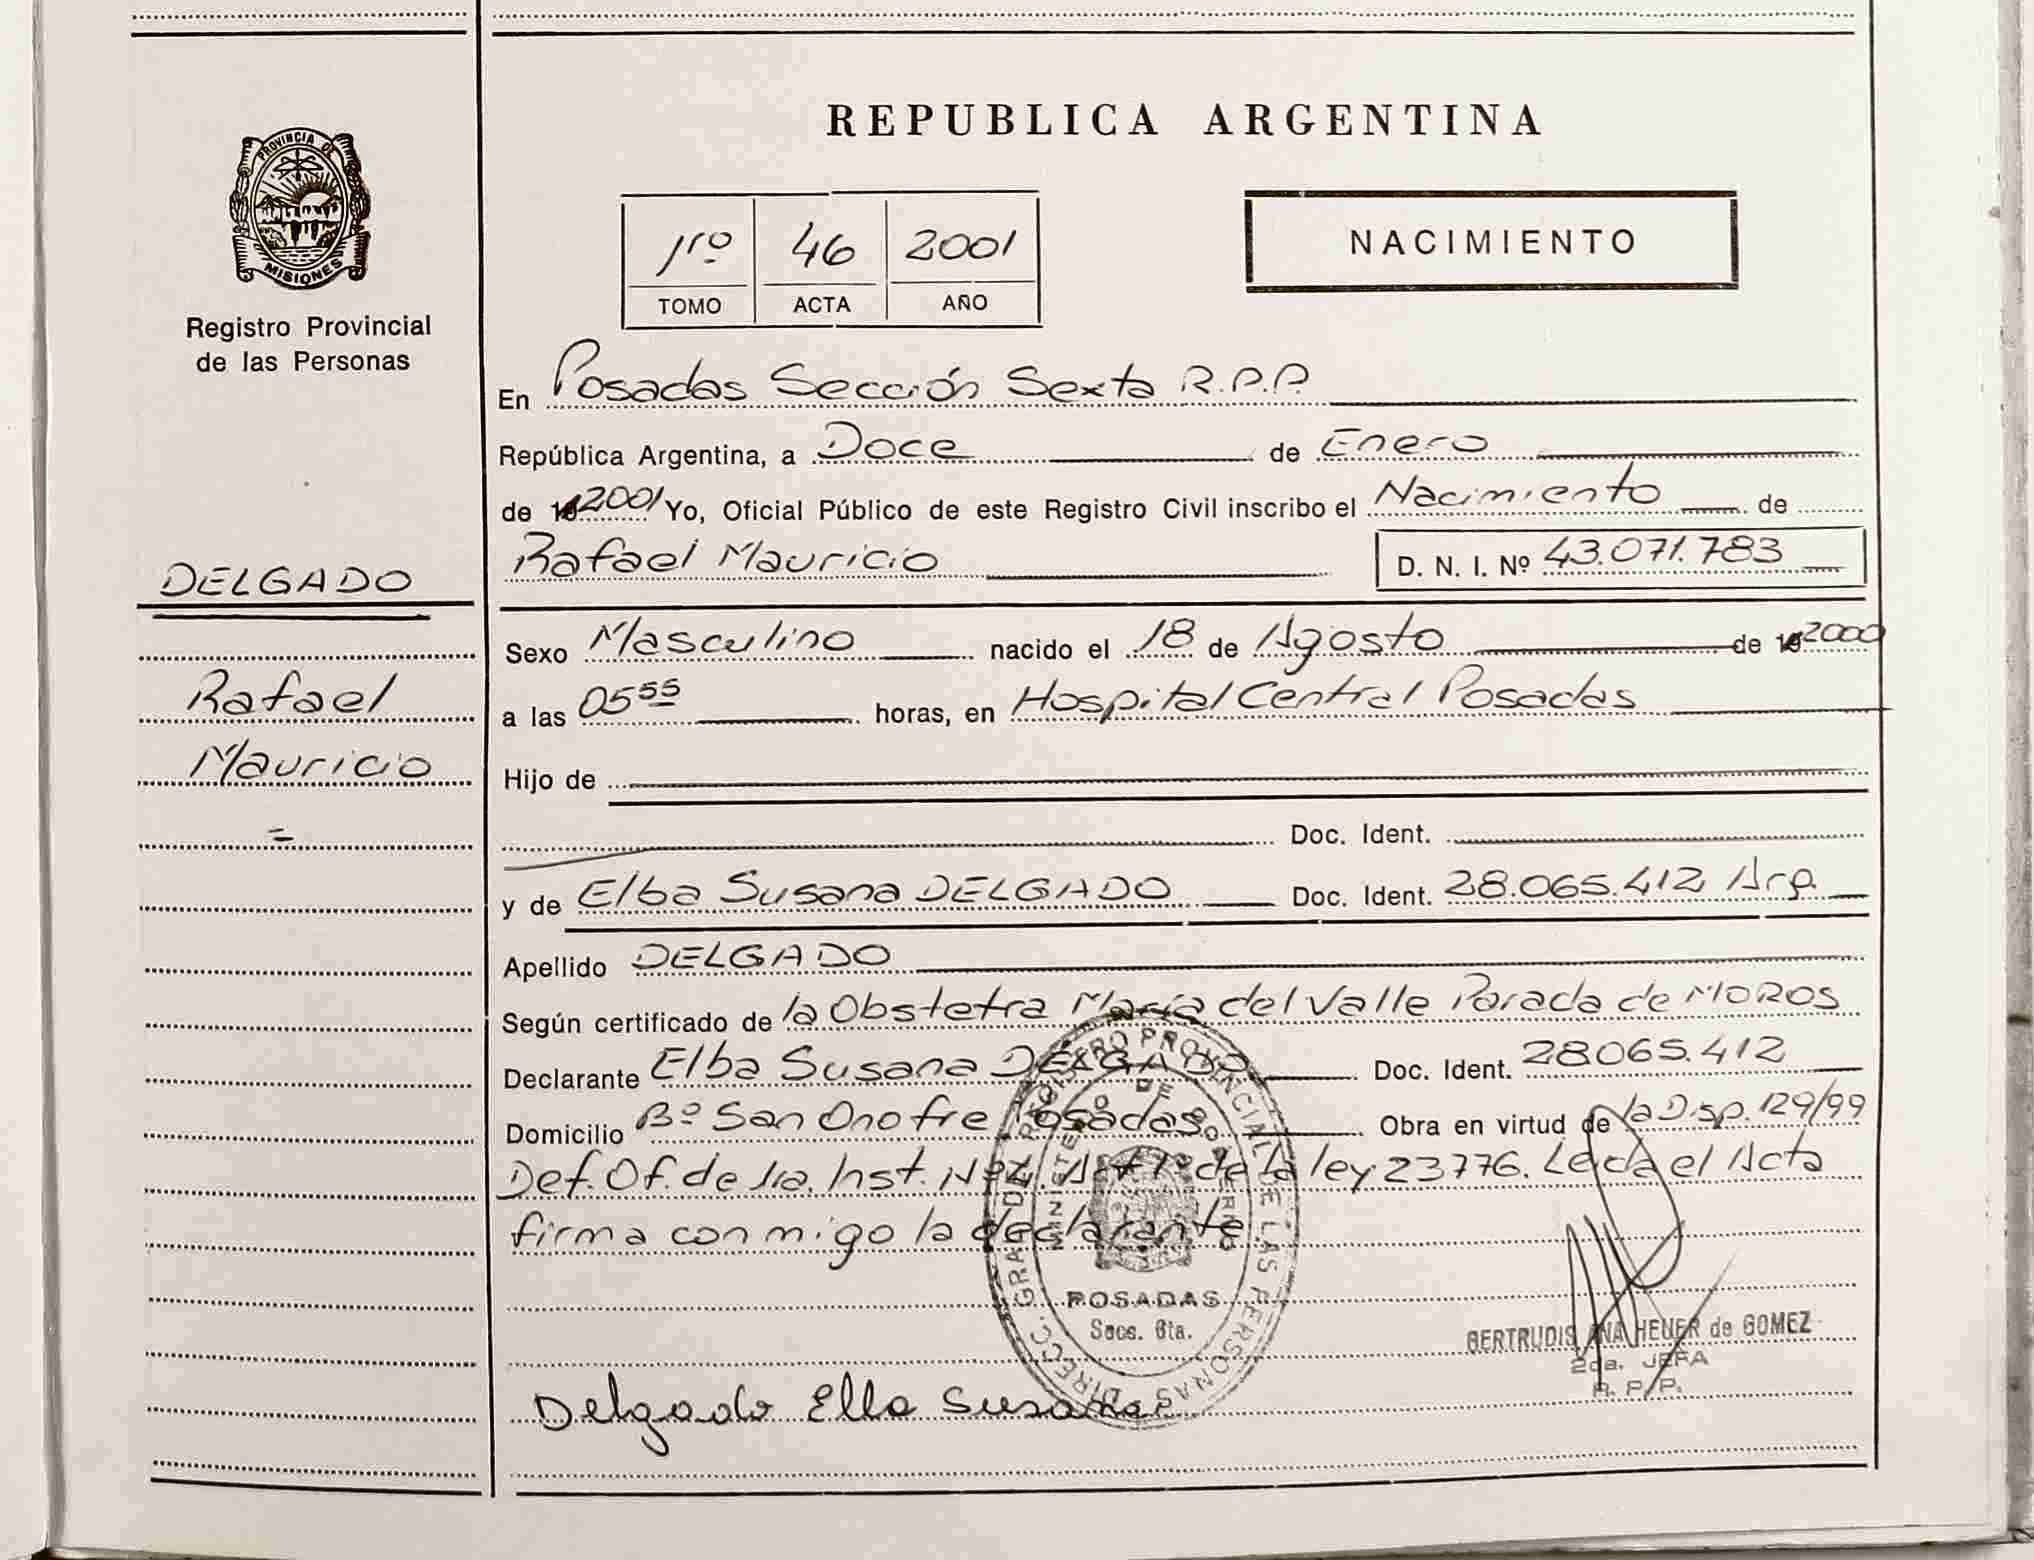 REPUBLICA ARGENTINA
PROVINCIA DE
MISIONES
Registro Provincial
de las Personas
1ro 46 2001
TOMO ACTA AÑO
NACIMIENTO
En Posadas Sección Sexta R.P.P.
República Argentina, a Doce de Enero
de 2001 Yo, Oficial Público de este Registro Civil inscribo el Nacimiento de
Rafael Mauricio D. N. I. Nº 43.071.783
DELGADO
Rafael
Mauricio
Sexo Masculino nacido el 18 de Agosto de 2000
a las 05 55 horas, en Hospital Central Posadas
Hijo de
Doc. Ident.
y de Elba Susana DELGADO Doc. Ident. 28.065.412 Arg.
Apellido DELGADO
Según certificado de la Obstetra María del Valle Parada de MOROS
Declarante Elba Susana DELGADO Doc. Ident. 28065.412
Domicilio Bº San Onofre Posadas Obra en virtud de la Disp. 129/99
Def. Of. de 1ra. Inst. Nº4. Art 1º de la ley 23776. Leída el Acta
firma conmigo la declarante
DIRECC. GRAL DEL REGISTRO PROVINCIAL DE LAS PERSONAS
MINISTERIO DE GOBIERNO
POSADAS
Secc. 6ta.
GERTRUDIS ANA HENER de GOMEZ
2da. JEFA
R. P. P.
Delgado Elba Susana